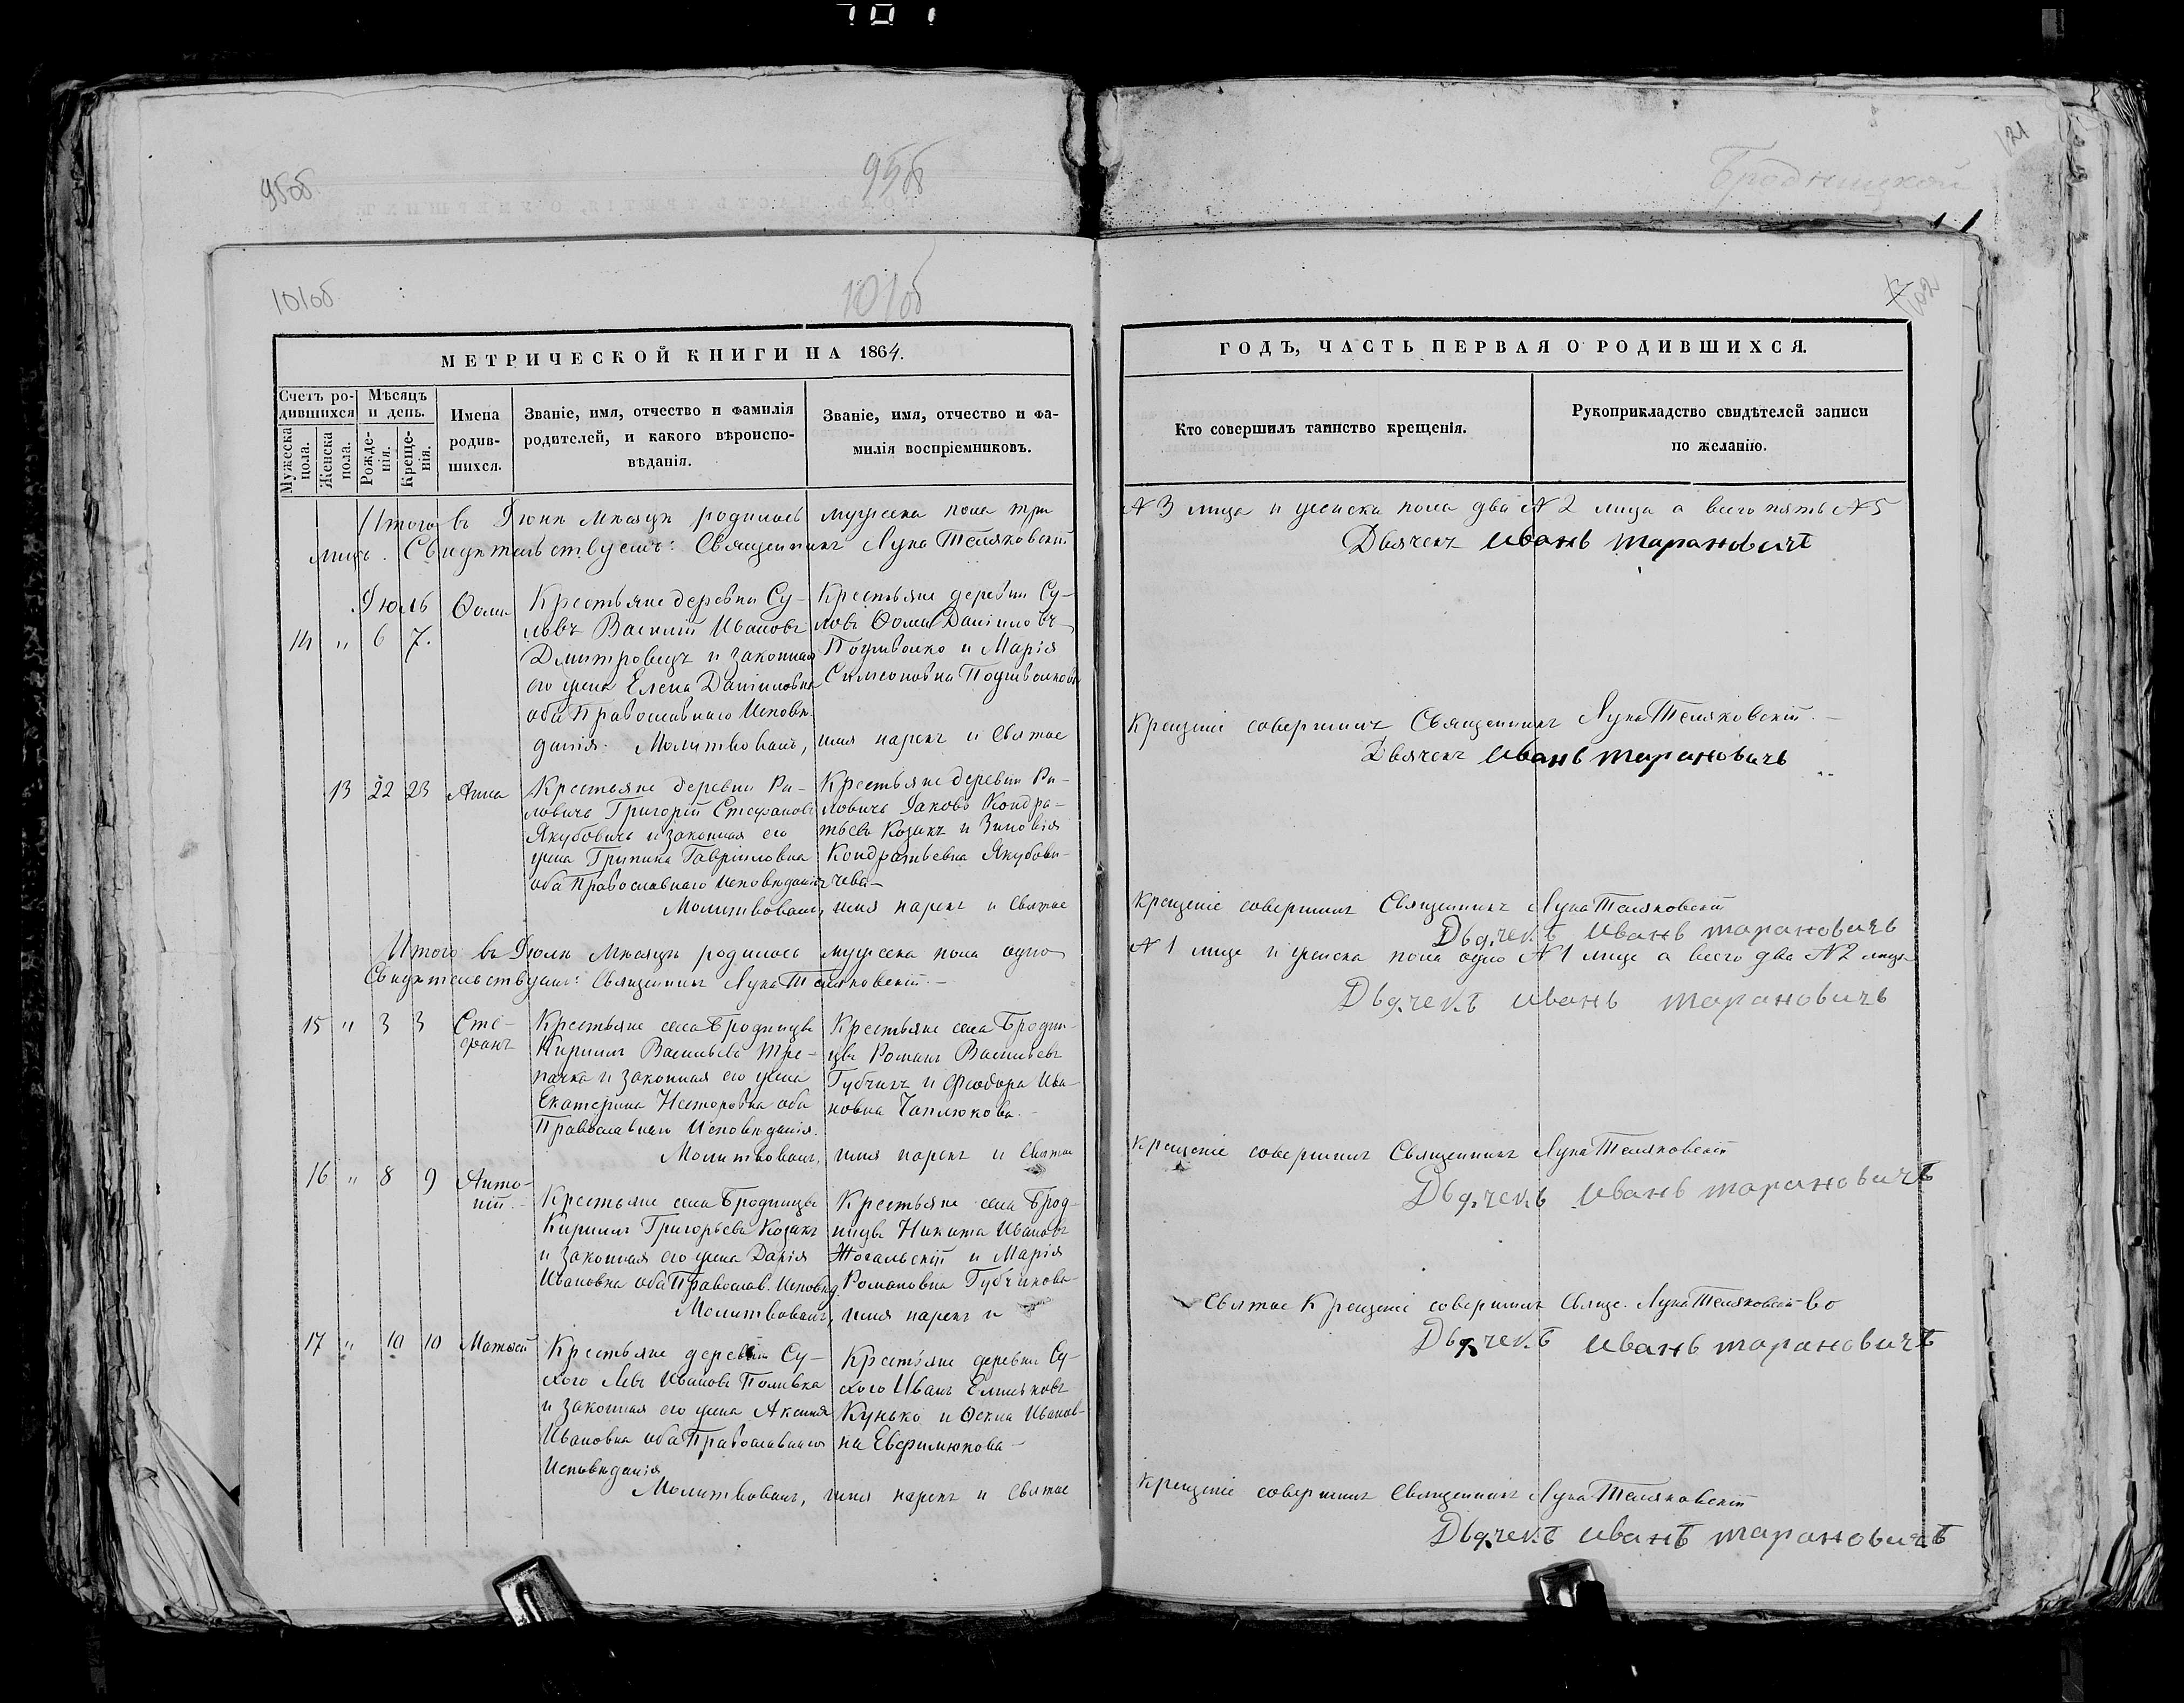 701
95об
95об
Бродницкой
121
101об
101об
102
МЕТРИЧЕСКОЙ КНИГИ НА 1864.
Счетъ ро-
дившихся
Мужеска пола.
Женска пола.
Мѣсяцъ
и день.
Рожде-
нія.
Креще-
нія.
Имена
родив-
шихся.
Званіе, имя, отчество и фамилія
родителей, и какого вѣроиспо-
вѣданія.
Званіе, имя, отчество и фа-
милія воспріемниковъ.
ГОДЪ, ЧАСТЬ ПЕРВАЯ О РОДИВШИХСЯ.
Кто совершилъ таинство крещенія.
Рукоприкладство свидѣтелей записи
по желанію.
Итого въ Іюнѣ Мѣсяцѣ родилось мужеска пола три
№ 3 лица и женска пола два № 2 лица а всего пять № 5
лицъ. Свидѣтельствуемъ: Священникъ Лука Теляковскій
Дьячекъ Иванъ Тарановичъ
Іюль
14 " 6 7.
Ѳома
Крестьяне деревни Су-
Василій Ивановъ
Дмитровецъ и законная
его жена Елена Даніиловна
оба Православнаго Исповѣ-
данія. Молитвовалъ, имя нарекъ и Святое
Крестьяне деревни Су-
Ѳома Даниловъ
и Марія
Симеоновна
Крещеніе совершилъ Священникъ Лука Теляковскій.
Дьячекъ Иванъ Тарановичъ
13 22 23
Анна
Крестьяне деревни Ри-
ловичъ Григорій Стефановъ
Якубовичъ и законная его
жена Грипина Гавріиловна
оба Православнаго Исповѣданія
Молитвовалъ, имя нарекъ и Святое
Крестьяне деревни Ри-
ловичъ Іаковъ Кондра-
тьевъ Козакъ и Зиновія
Кондратьевна Якубови-
чева
Крещеніе совершилъ Священникъ Лука Теляковскій
Дьячекъ Иванъ Тарановичъ
Итого въ Іюлѣ Мѣсяцѣ родилось мужеска пола одно
№ 1 лице и женска пола одно № 1 лице а всего два № 2 лица
Свидѣтельствуемъ: Священникъ Лука Теляковскій.
Дьячекъ Иванъ Тарановичъ
15 " 3 3
Сте-
фанъ
Крестьяне села Бродницы
Кириллъ Васильевъ Тре-
пачка и законная его жена
Екатерина Несторовна оба
Православнаго Исповѣданія.
Молитвовалъ, имя нарекъ и Святое
Крестьяне села Бродни-
цы Романъ Васильевъ
Губчикъ и Феодора Ива-
новна Чаплюкова.
Крещеніе совершилъ Священникъ Лука Теляковскій
Дьячекъ Иванъ Тарановичъ
16 " 8 9
Анто-
ній.
Крестьяне села Бродницы
Кириллъ Григорьевъ Козакъ
и законная его жена Дарія
Ивановна оба Православ. Исповѣд.
Молитвовалъ, имя нарекъ и
Крестьяне села Брод-
ницы Никита Ивановъ
Жогальскій и Марія
Романовна Губчикова
Святое Крещеніе совершилъ Свяще. Лука Теляковскій
Дьячекъ Иванъ Тарановичъ
17 " 10 10
Матѳей
Крестьяне деревни Су-
хого Левъ Ивановъ Поливка
и законная его жена Аксинія
Ивановна оба Православнаго
Исповѣданія
Молитвовалъ, имя нарекъ и Святое
Крестьяне деревни Су-
хого Иванъ
Кунько и Ѳекла Иванов-
на Евфимюкова
Крещеніе совершилъ Священникъ Лука Теляковскій
Дьячекъ Иванъ Тарановичъ